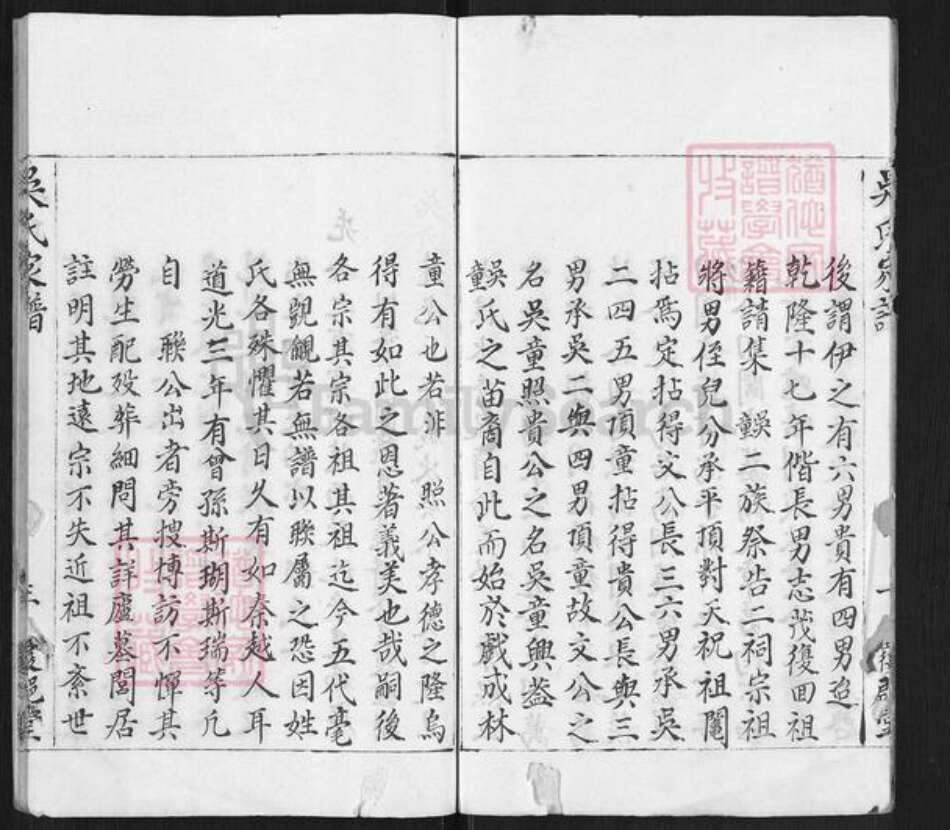 後謂伊之有六男貴有四男迨
乾隆十七年偕長男志茂復回祖
籍請集吳童二族祭告二祠宗祖
將男侄兒分承平頂對天祝祖鬮
拈爲定拈得文公長三六男承吳
二四五男頂童拈得貴公長與三
男承吳二與四男頂童故文公之
名吳童照貴公之名吳童興蓋
吳童氏之苗裔自此而始於戲成林
童公也若非照公孝德之隆烏
得有如此之恩著義美也哉嗣後
各宗其宗各祖其祖迄今五代毫
無覬覦若無譜以聯屬之恐因姓
氏各殊懼其日久有如秦越人耳
道光三年有曾孫斯瑚斯瑞等凡
自聯公出者旁搜博訪不憚其
勞生配歿葬細問其詳廬墓閭居
註明其地遠宗不失近祖不紊世
吳氏家譜
FamilySearch